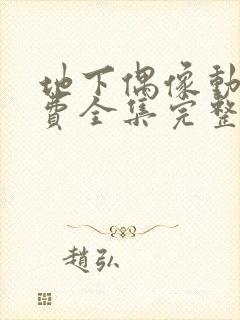 地下偶像動
費全集完整
趙弘